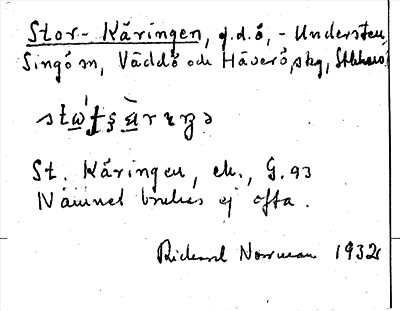 Stor-Käringen, g.d.ö, - Understen,
Singö sn, Väddö och Häverö skg, Sthlms l.
St. Käringen, ek., G. 93
Namnet brukas ej ofta.
Rickard Norman 1932